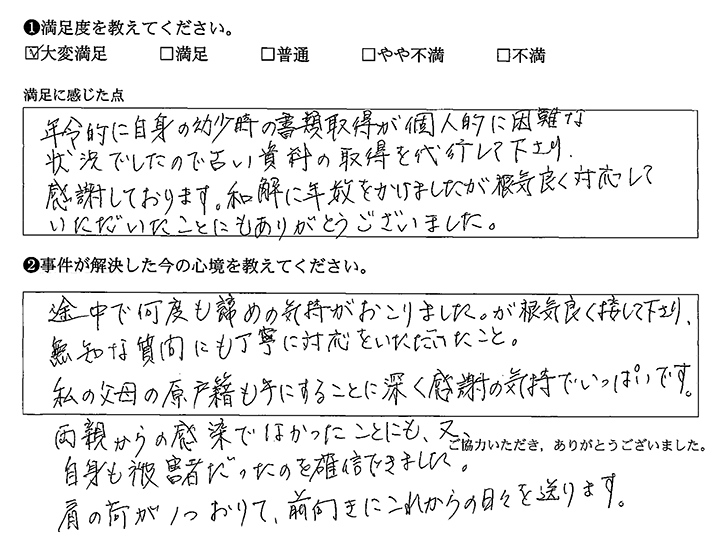 ❶満足度を教えてください。
☑大変満足 □満足 □普通 □やや不満 □不満
満足に感じた点
年令的に自身の幼少時の書類取得が個人的に困難な
状況でしたので古い資料の取得を代行して下さり、
感謝しております。和解に年数をかけましたが根気良く対応して
いただいたことにもありがとうございました。
❷事件が解決した今の心境を教えてください。
途中で何度も諦めの気持がおこりました。が根気良く接して下さり、
無知な質問にも丁寧に対応をいただけたこと。
私の父母の原戸籍も手にすることに深く感謝の気持でいっぱいです。
両親からの感染でなかったことにも、又、
ご協力いただき，ありがとうございました。
自身も被害者だったのを確信できました。
肩の荷が1つおりて、前向きにこれからの日々を送ります。